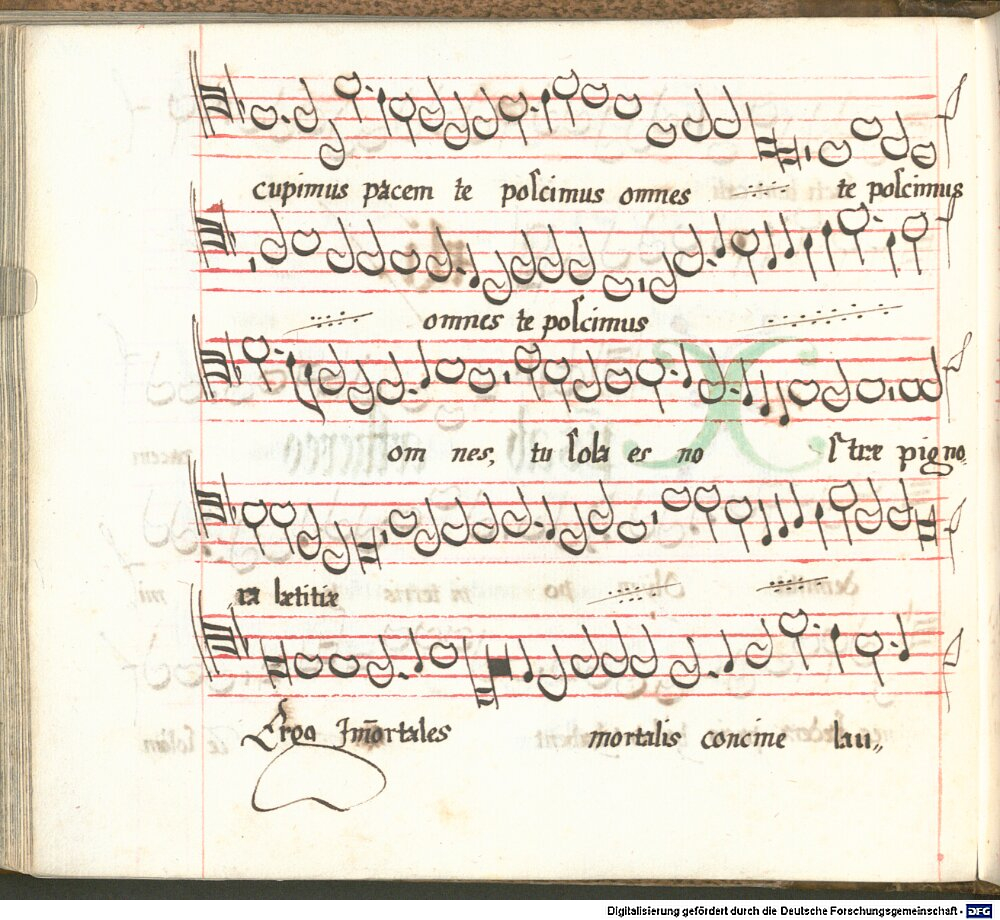 cupimus pacem te poſcimus omnes te poſcimus
omnes te poſcimus
om nes, tu ſola es no ſtræ pigno
ra lætitiæ
Ergo Im̄ortales mortalis concine lau,,
Digitalisierung gefördert durch die Deutsche Forschungsgemeinschaft - DFG